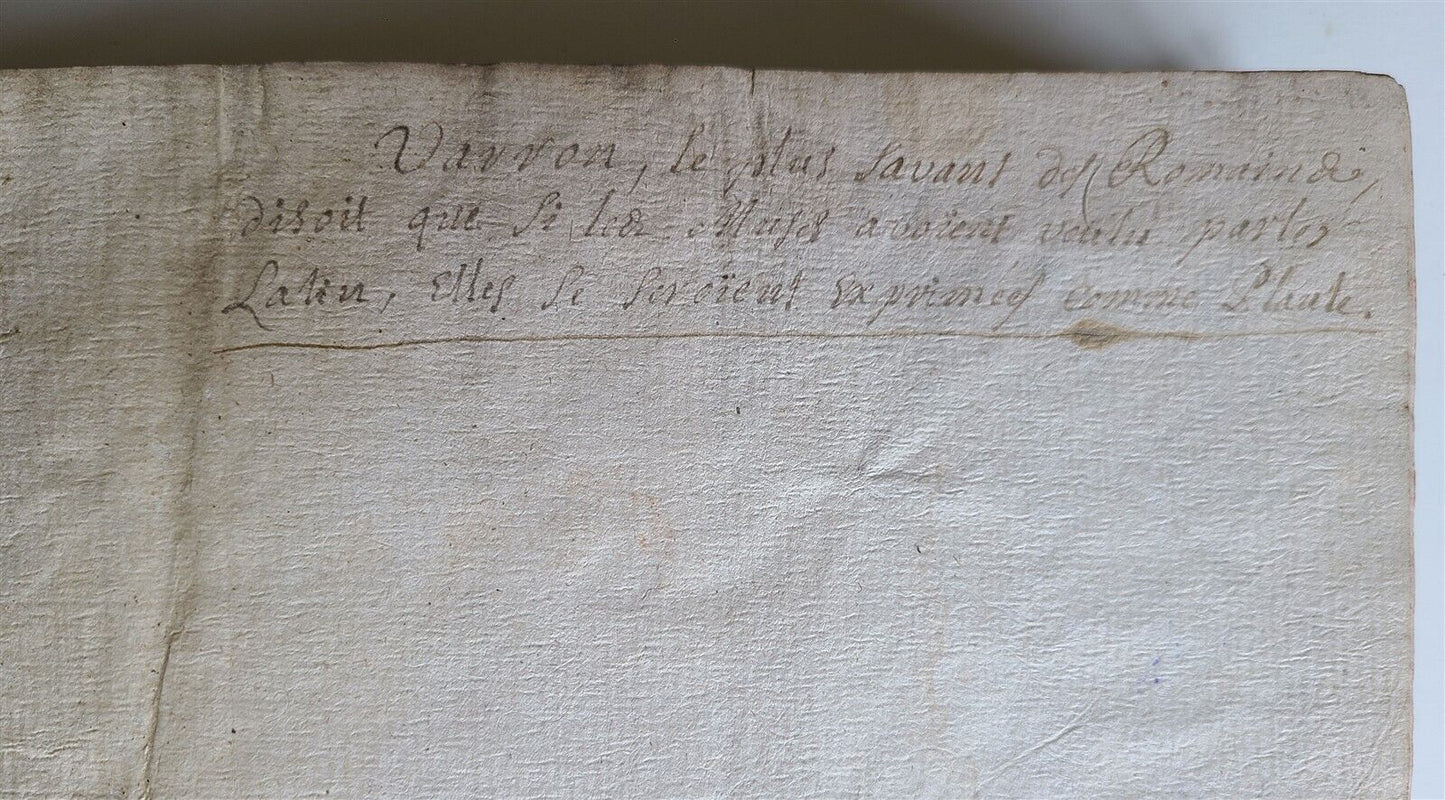 Varron, le plus savant des Romains,
disoit que si les Muses avoient voulu parler
Latin, Elles se seroïent Exprimées comme Plaute.